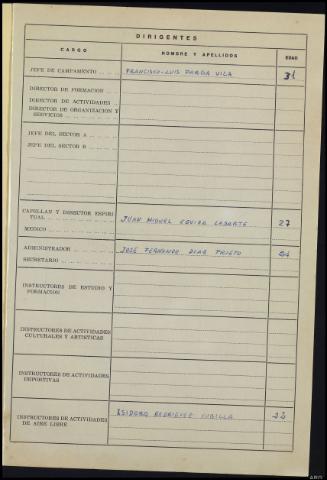 DIRIGENTES
CARGO NOMBRE Y APELLIDOS EDAD
JEFE DE CAMPAMENTO FRANCISCO-LUIS PARGA VILA 31
DIRECTOR DE FORMACION
DIRECTOR DE ACTIVIDADES
DIRECTOR DE ORGANIZACION Y
SERVICIOS
JEFE DEL SECTOR A
JEFE DEL SECTOR B
CAPELLAN Y DIRECTOR ESPIRI-
TUAL JUAN MIGUEL LABARTE 27
MEDICO
ADMINISTRADOR JOSÉ FERNANDO DIAZ PRIETO
SECRETARIO
INSTRUCTORES DE ESTUDIO Y
FORMACION
INSTRUCTORES DE ACTIVIDADES
CULTURALES Y ARTISTICAS
INSTRUCTORES DE ACTIVIDADES
DEPORTIVAS
INSTRUCTORES DE ACTIVIDADES ISIDORO RODRIGUEZ 22
DE AIRE LIBRE